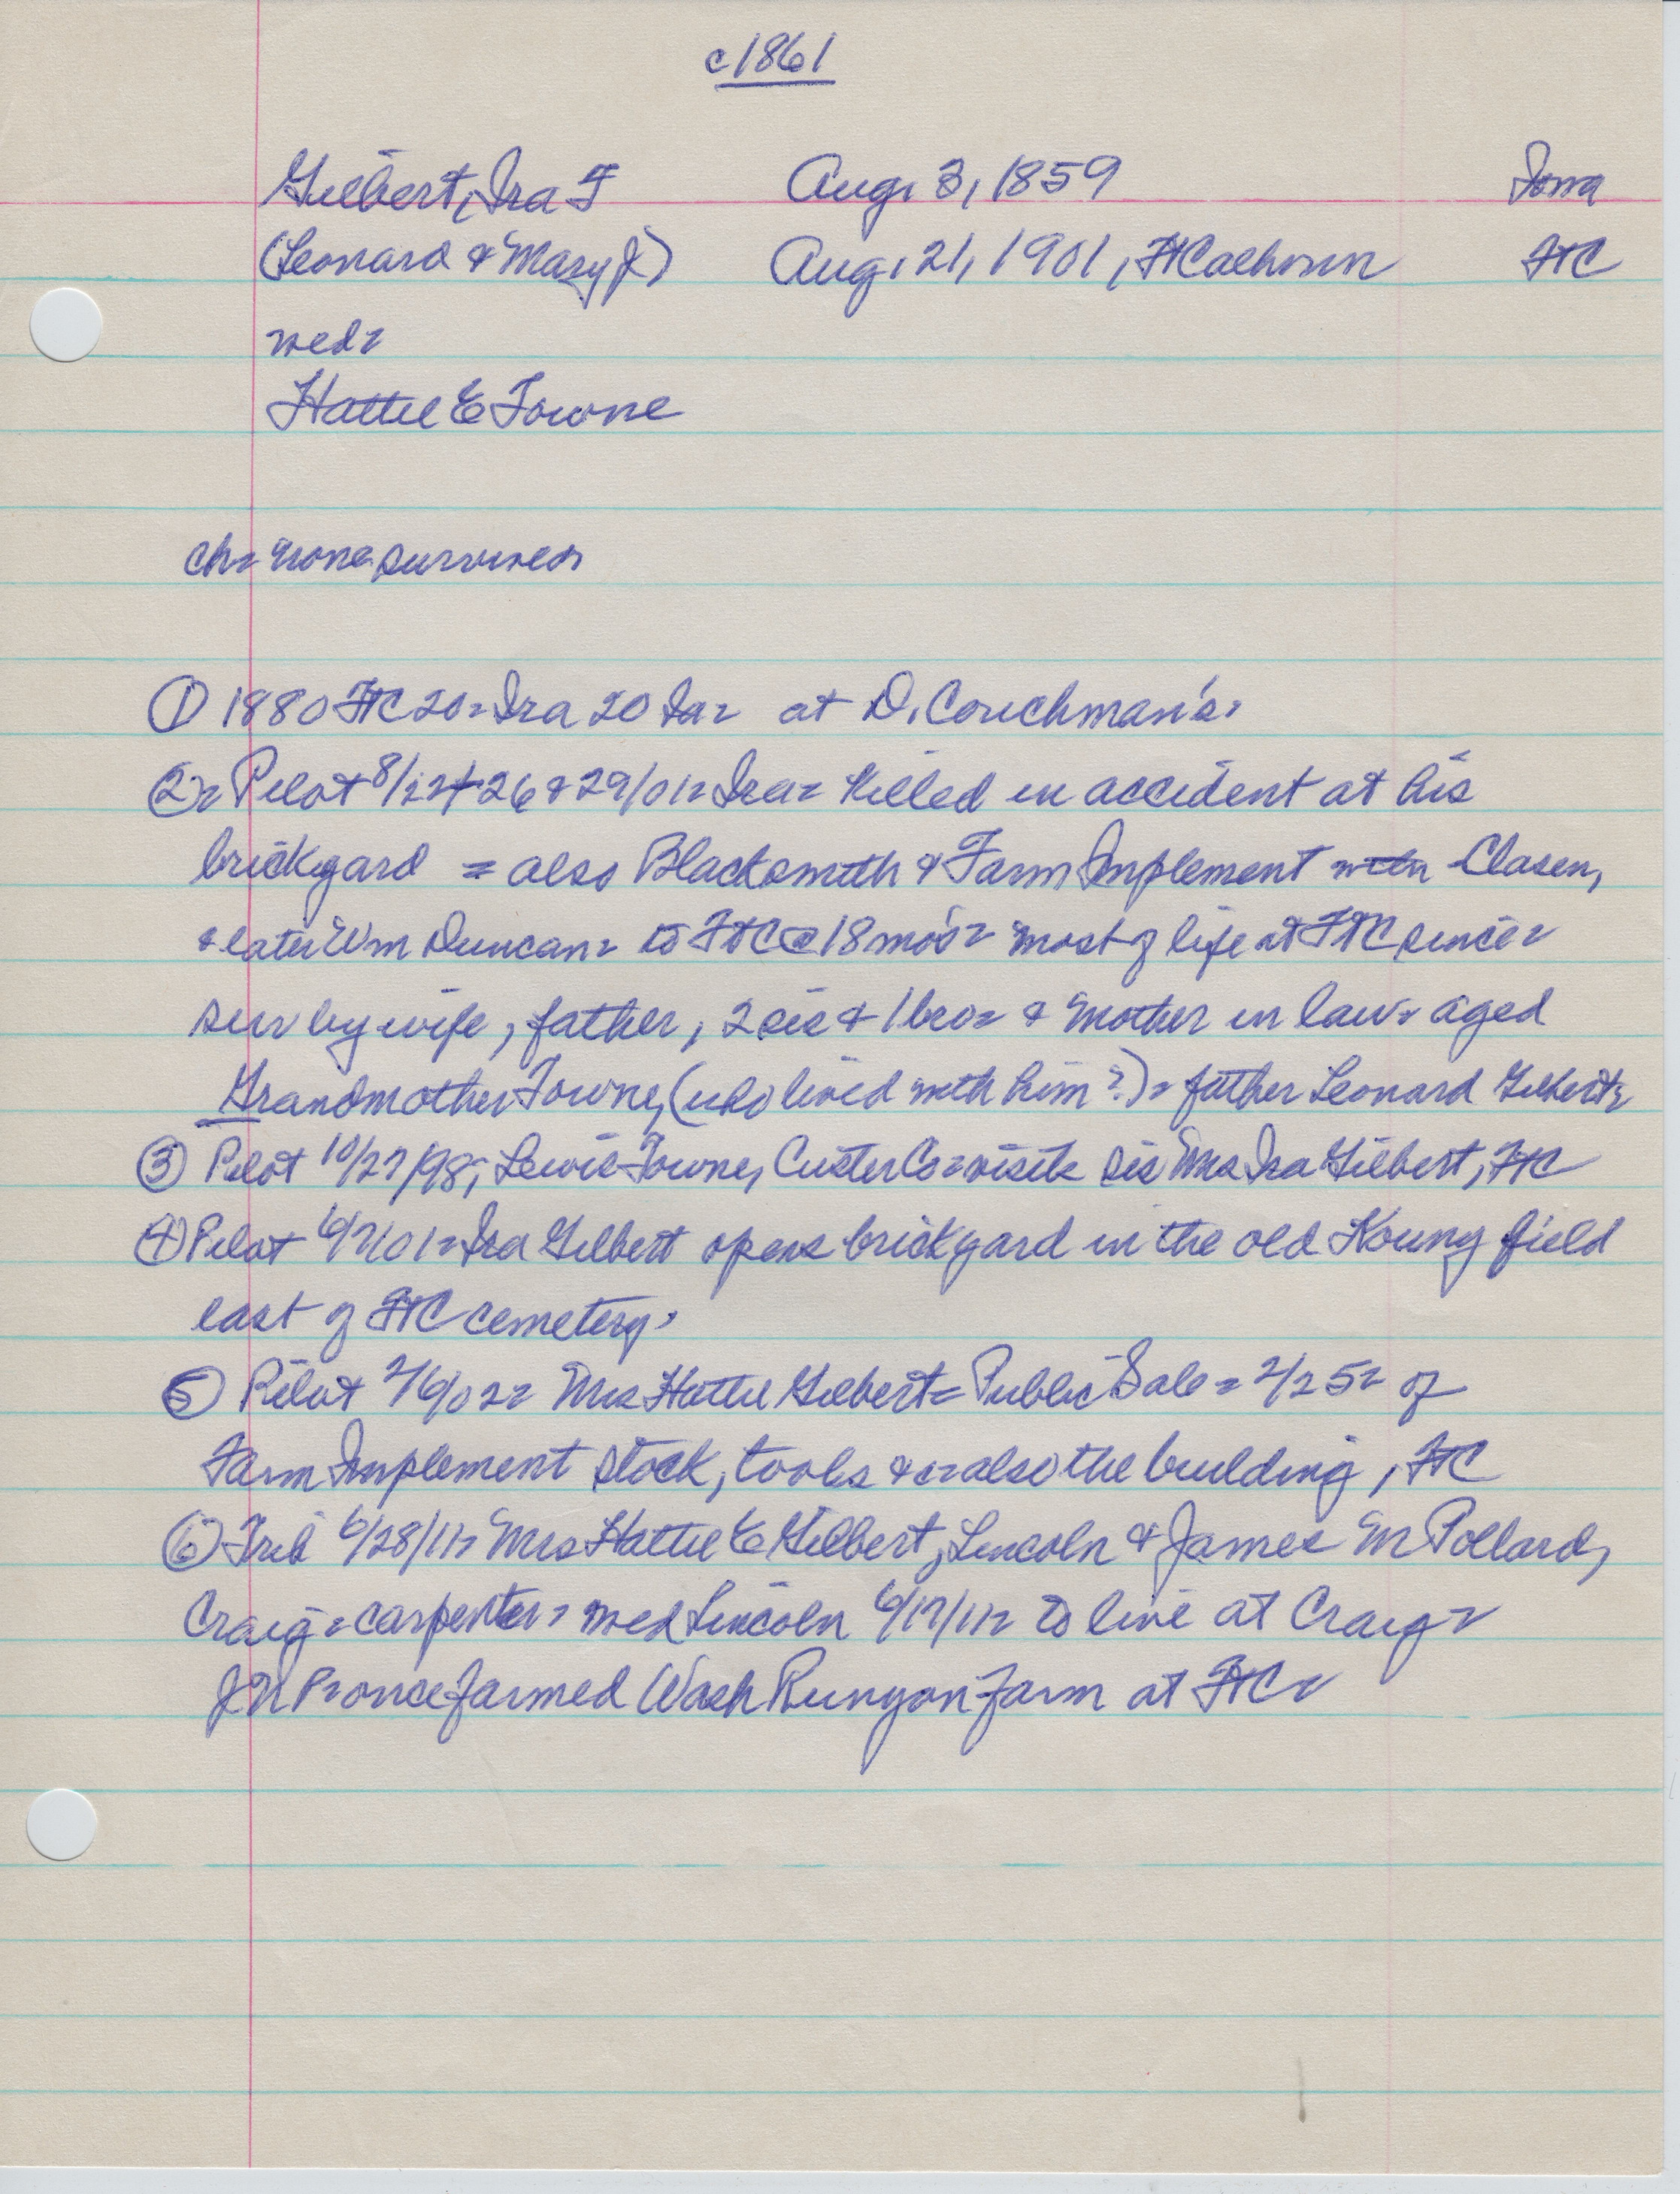 c1861
Gilbert, Ira F Aug. 3, 1859 Iowa
(Leonard & Mary J) Aug. 21, 1901, FtCalhoun FtC
wed=
Hattie E Towne
ch= none survived
① 1880 FtC 20= Ira 20 Ia= at D. Couchman's.
②= Pilot 8/22 + 26 & 29/01= Ira= killed in accident at his
brickyard = also Blacksmith & Farm Implement with Clasen,
& later Wm Duncan= to FtC @ 18 mo's= most of life at FtC since=
sur by wife, father, 2 sis & 1 bro= & mother in law= aged
Grandmother Towne, (who lived with him?)= father Leonard Gilbert=
③ Pilot 10/27/98; Lewis Towne, Custer Co= visits sis Mrs Ira Gilbert, FtC
④ Pilot 6/7/01= Ira Gilbert opens brickyard in the old Koung field
east of FtC cemetery.
⑤ Pilot 2/6/02= Mrs Hattie Gilbert= Public Sale= 2/25= of
Farm Implement stock, tools & c= also the building, FtC
⑥ Trib 6/28/11= Mrs Hattie E Gilbert, Lincoln & James M Pollard,
Craig= carpenter= wed Lincoln 6/17/11= to live at Craig=
JM P= once farmed Wash Runyon farm at FtC=